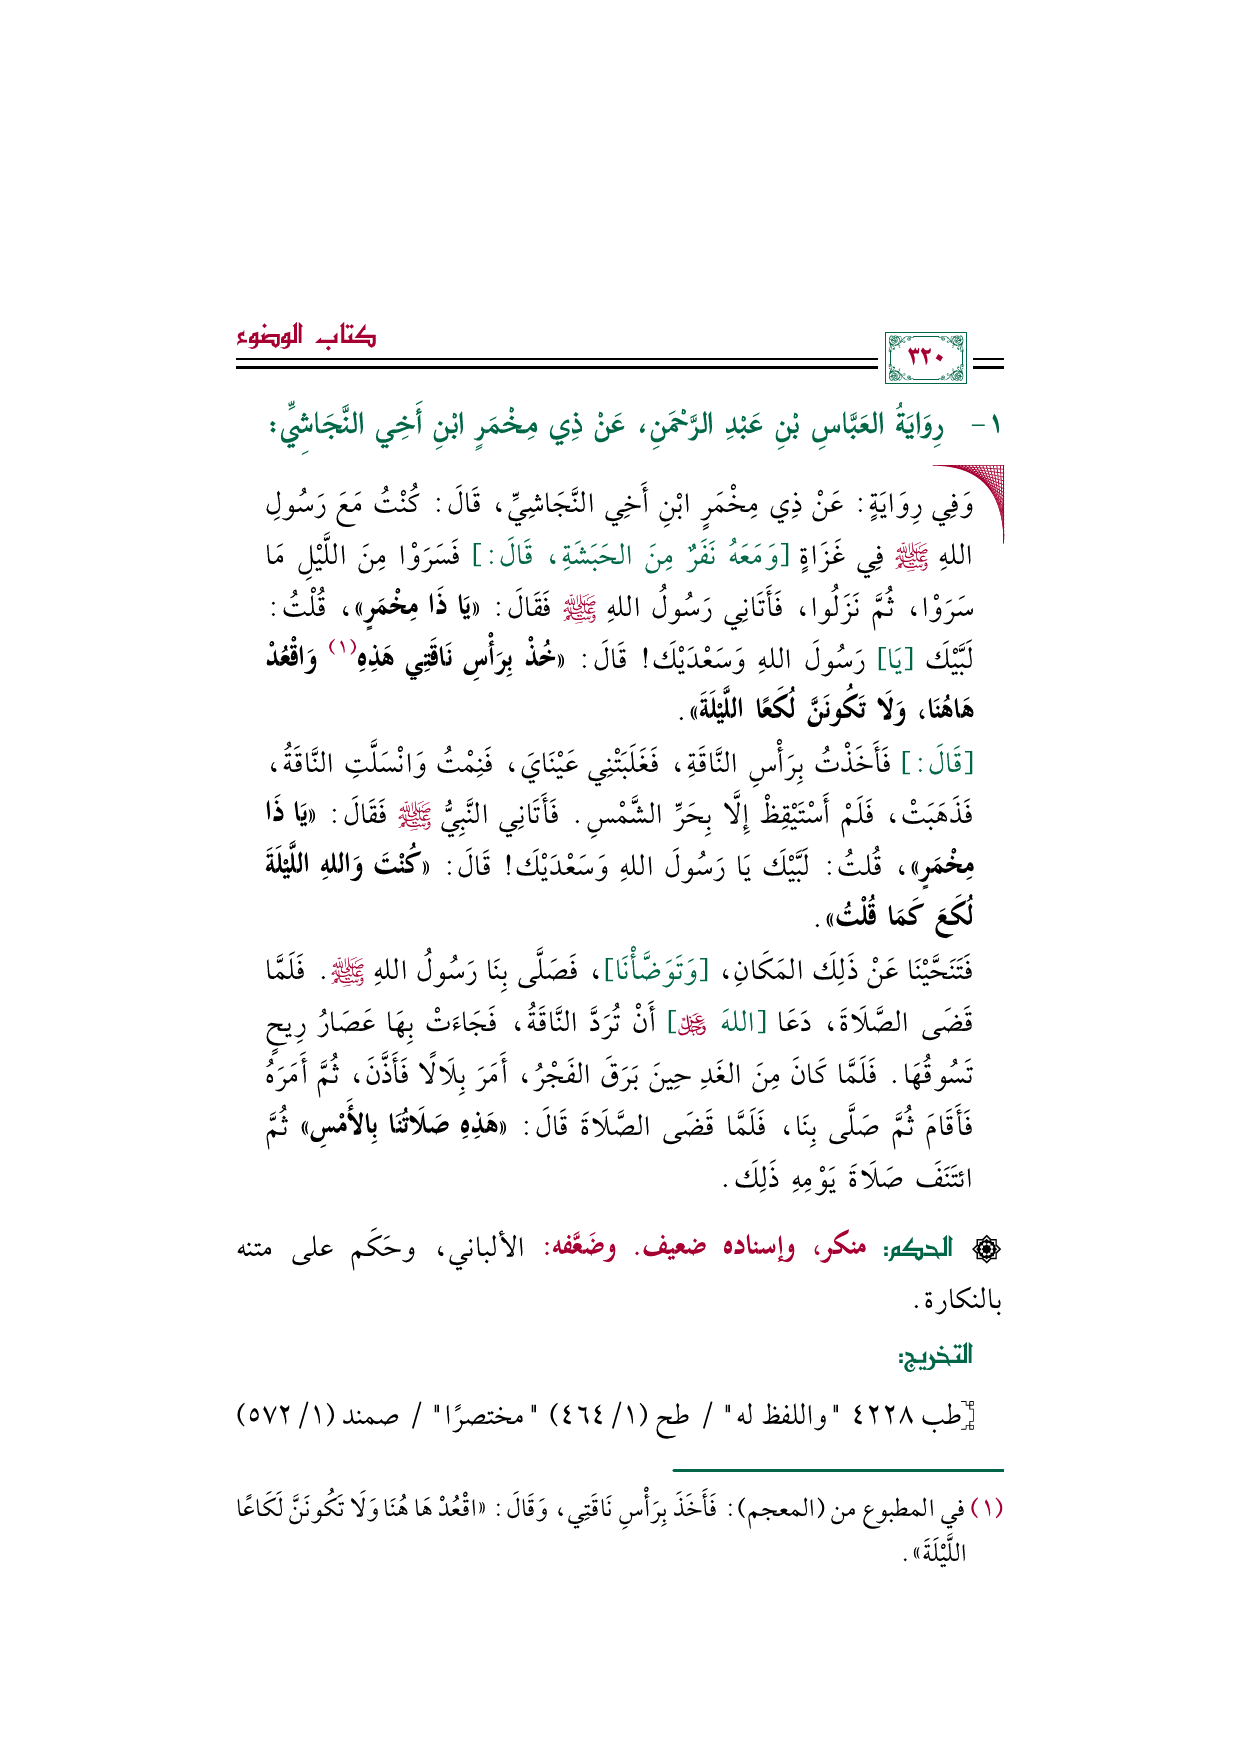 كتاب الوضوء
٣٢٠
١- رِوَايَةُ العَبَّاسِ بْنِ عَبْدِ الرَّحْمَنِ، عَنْ ذِي مِخْمَرٍ ابْنِ أَخِي النَّجَاشِيِّ:
وَفِي رِوَايَةٍ: عَنْ ذِي مِخْمَرٍ ابْنِ أَخِي النَّجَاشِيِّ، قَالَ: كُنْتُ مَعَ رَسُولِ
اللهِ ﷺ فِي غَزَاةٍ [وَمَعَهُ نَفَرٌ مِنَ الحَبَشَةِ، قَالَ:] فَسَرَوْا مِنَ اللَّيْلِ مَا
سَرَوْا، ثُمَّ نَزَلُوا، فَأَتَانِي رَسُولُ اللهِ ﷺ فَقَالَ: «يَا ذَا مِخْمَرٍ»، قُلْتُ:
لَبَّيْكَ [يَا] رَسُولَ اللهِ وَسَعْدَيْكَ! قَالَ: «خُذْ بِرَأْسِ نَاقَتِي هَذِهِ(١) وَاقْعُدْ
هَاهُنَا، وَلَا تَكُونَنَّ لُكَعًا اللَّيْلَةَ».
[قَالَ:] فَأَخَذْتُ بِرَأْسِ النَّاقَةِ، فَغَلَبَتْنِي عَيْنَايَ، فَنِمْتُ وَانْسَلَّتِ النَّاقَةُ،
فَذَهَبَتْ، فَلَمْ أَسْتَيْقِظْ إِلَّا بِحَرِّ الشَّمْسِ. فَأَتَانِي النَّبِيُّ ﷺ فَقَالَ: «يَا ذَا
مِخْمَرٍ»، قُلتُ: لَبَّيْكَ يَا رَسُولَ اللهِ وَسَعْدَيْكَ! قَالَ: «كُنْتَ وَاللهِ اللَّيْلَةَ
لُكَعَ كَمَا قُلْتُ».
فَتَنَحَّيْنَا عَنْ ذَلِكَ المَكَانِ، [وَتَوَضَّأْنَا]، فَصَلَّى بِنَا رَسُولُ اللهِ ﷺ. فَلَمَّا
قَضَى الصَّلَاةَ، دَعَا [اللهَ عَزَّ وَجَلَّ] أَنْ تُرَدَّ النَّاقَةُ، فَجَاءَتْ بِهَا عَصَارُ رِيحٍ
تَسُوقُهَا. فَلَمَّا كَانَ مِنَ الغَدِ حِينَ بَرَقَ الفَجْرُ، أَمَرَ بِلَالًا فَأَذَّنَ، ثُمَّ أَمَرَهُ
فَأَقَامَ ثُمَّ صَلَّى بِنَا، فَلَمَّا قَضَى الصَّلَاةَ قَالَ: «هَذِهِ صَلَاتُنَا بِالأَمْسِ» ثُمَّ
ائتَنَفَ صَلَاةَ يَوْمِهِ ذَلِكَ.
الحكم: منكر، وإسناده ضعيف. وضَعَّفه: الألباني، وحَكَم على متنه
بالنكارة.
التخريج:
[طب ٤٢٢٨ "واللفظ له" / طح (١/ ٤٦٤) "مختصرًا" / صمند (١/ ٥٧٢)
(١) في المطبوع من (المعجم): فَأَخَذَ بِرَأْسِ نَاقَتِي، وَقَالَ: «اقْعُدْ هَا هُنَا وَلَا تَكُونَنَّ لَكَاعًا
اللَّيْلَةَ».